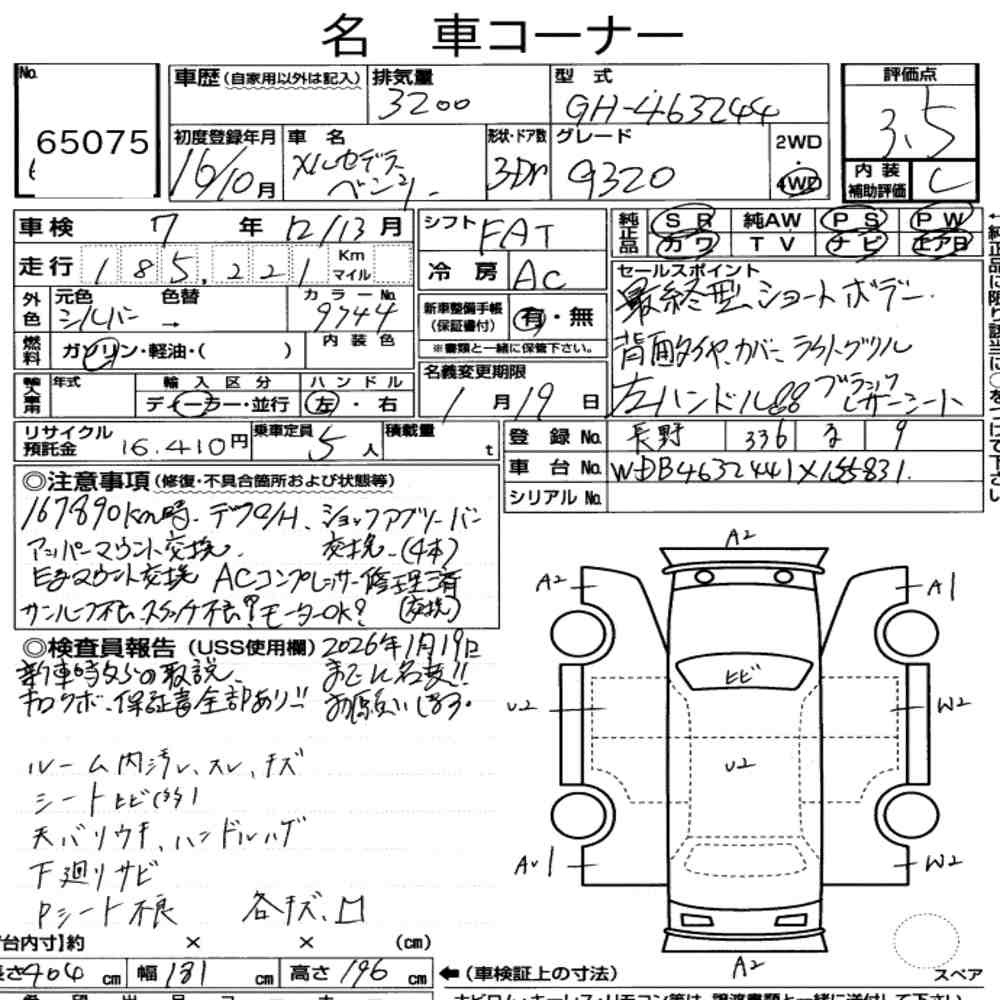 名 車コーナー
No.
65075
車歴(自家用以外は記入)
排気量
3200
型式
GH-463244
評価点
3.5
初度登録年月
16/10月
車名
メルセデス
ベンツ
形状・ドア数
3Dr
グレード
G320
2WD
・
4WD
内装
補助評価
C
車検 7年 12/13月
走行 185,221 Km マイル
シフト FAT
冷房 AC
純正品
SR 純AW PS PW
カワ TV ナビ エアB
セールスポイント
最終型、ショートボデー.
背面タイヤカバー、ライトグリル
左ハンドル!!ブラックレザーシート
外色
元色 色替 カラーNo.
シルバー → 9744
燃料
ガソリン・軽油・( )
内装色
新車整備手帳
(保証書付)
有・無
※書類と一緒に保管下さい。
輸入車用
年式
輸入区分
ディーラー・並行
ハンドル
左・右
名義変更期限
1月19日
リサイクル
預託金
16,410円
乗車定員 5人
積載量 t
登録No. 長野 336 9
車台No. WDB4632441X
シリアルNo.
◎注意事項(修復・不具合箇所および状態等)
167890Km時、デフO/H、ショックアブソーバー
アッパーマウント交換. 交換、(4本)
マウント交換 ACコンプレッサー修理済
サンルーフ不良、スイッチ不良?モーターOK? (交換)
◎検査員報告(USS使用欄) 2026年1月19日
新車時からの取説、 までに名変!!
キロクボ、保証書全部あり!! お願いします。
ルーム内汚レ、スレ、キズ
シートヒビ(多)
天バリウキ、ハンドルハゲ
下廻りサビ
Pシート不良 各キズ、凹
A2
A2
A1
ヒビ
U2
W2
U2
A1
W2
A2
スペア
台内寸】約 × × (cm)
長さ404cm 幅181cm 高さ196cm
←(車検証上の寸法)